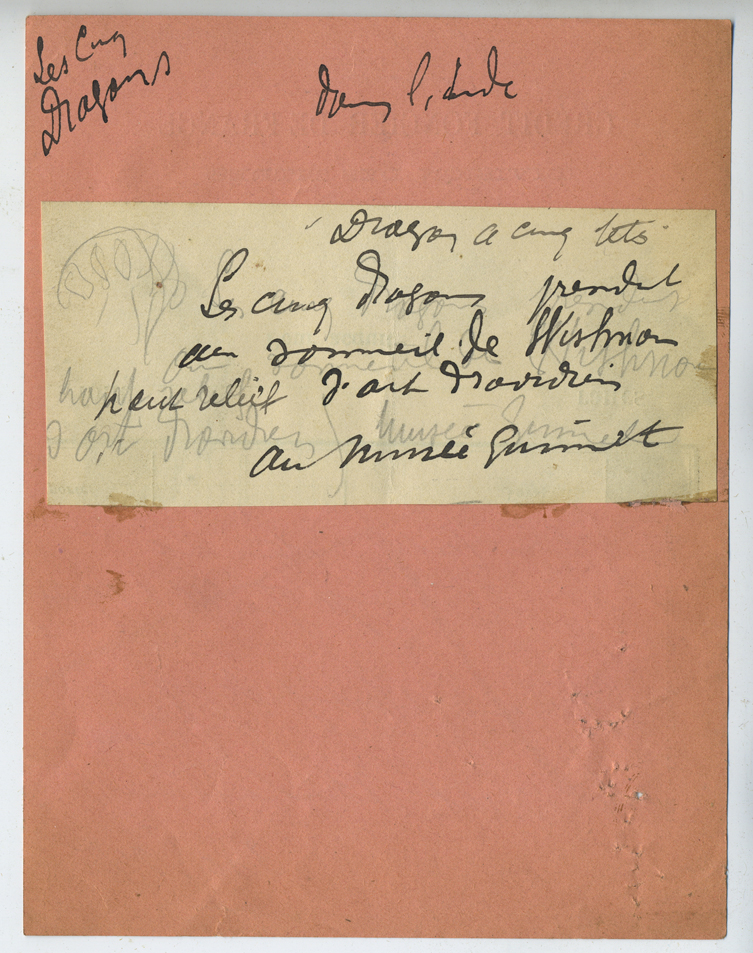 Les Cinq
Dragons
dans l'Inde
Dragon a cinq tets
Les cinq dragons prendut
au sommeil de Wishnou
haut relief d'art dravidien
au Musée Guimet
haut relief
d'art dravidien musée Guimet